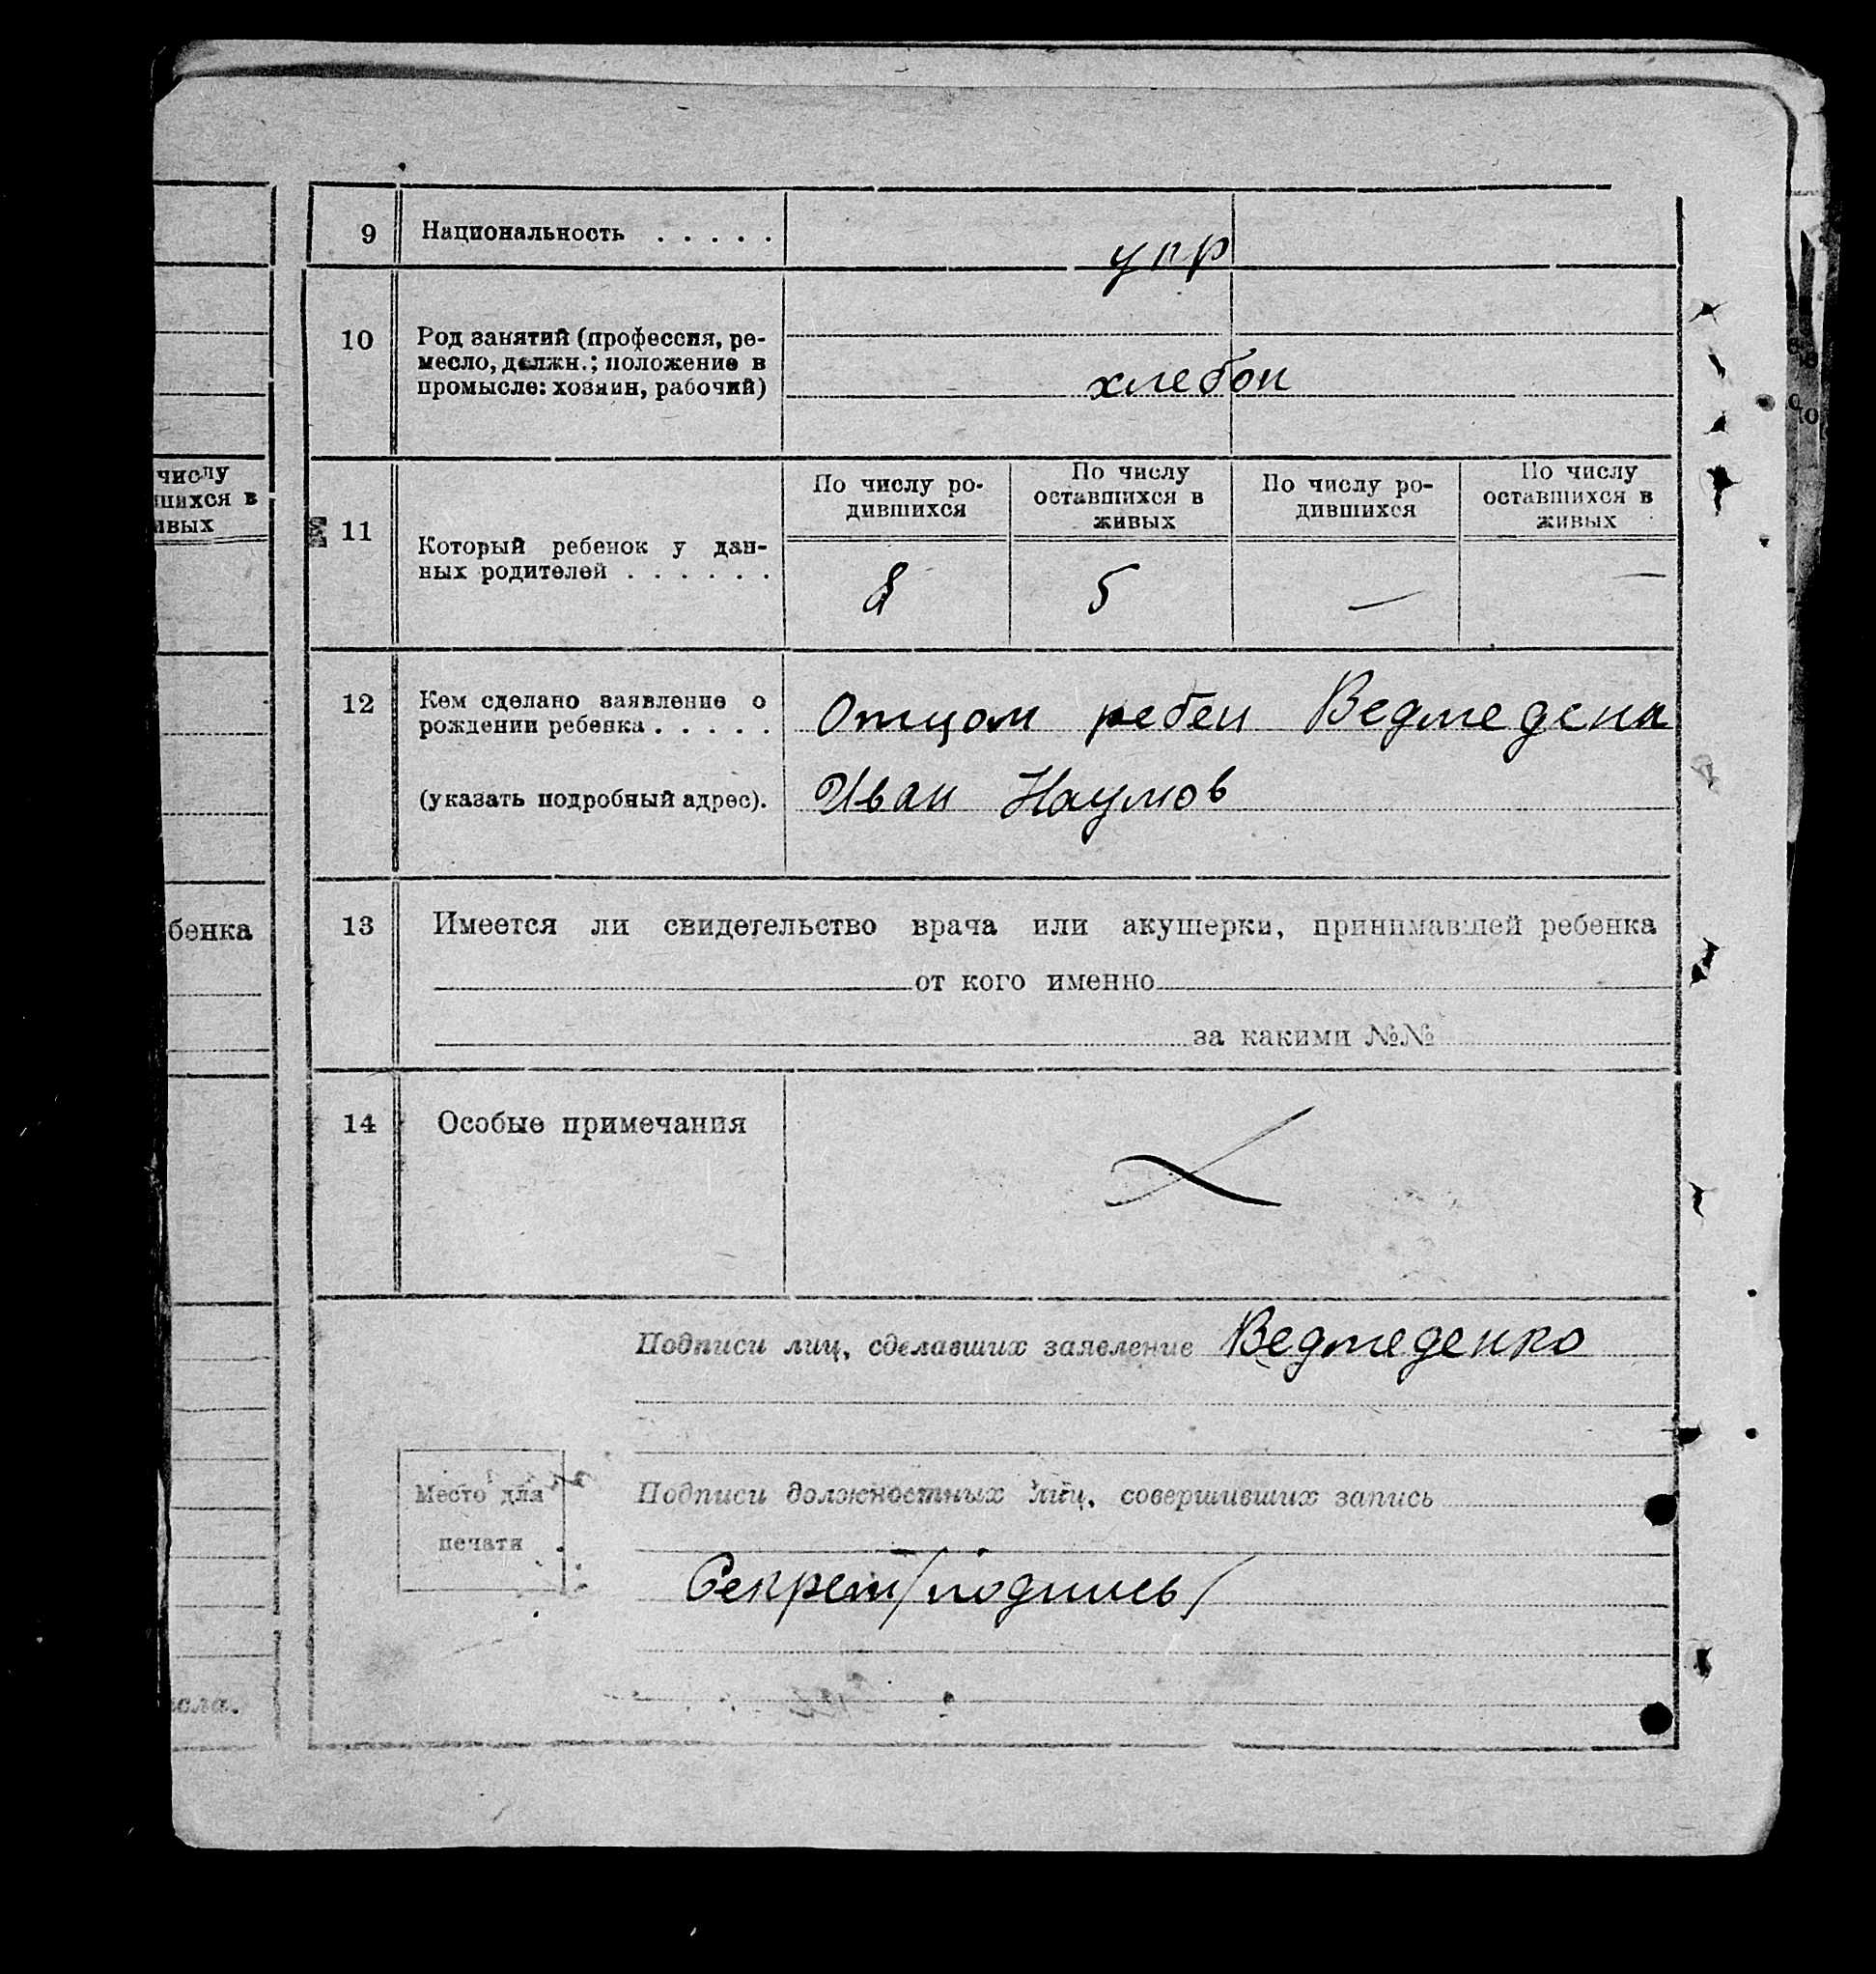 числу
шихся в
ивых
бенка
исла.
9 Национальность . . . . . укр
10 Род занятий (профессия, ре-
месло, должн.; положение в
промысле: хозяин, рабочий) хлебоп
По числу ро-
дившихся
По числу
оставшихся в
живых
По числу ро-
дившихся
По числу
оставшихся в
живых
11 Который ребенок у дан-
ных родителей . . . . . . 8 5 — —
12 Кем сделано заявление о
рождении ребенка . . . . . Отцом ребен Ведмеденк
(указать подробный адрес). Иван Наумов
13 Имеется ли свидетельство врача или акушерки, принимавшей ребенка
от кого именно
за какими №№
14 Особые примечания
Подписи лиц, сделавших заявление Ведмеденко
Место для
печати
Подписи должностных лиц, совершивших запись
Секрет/подпись/